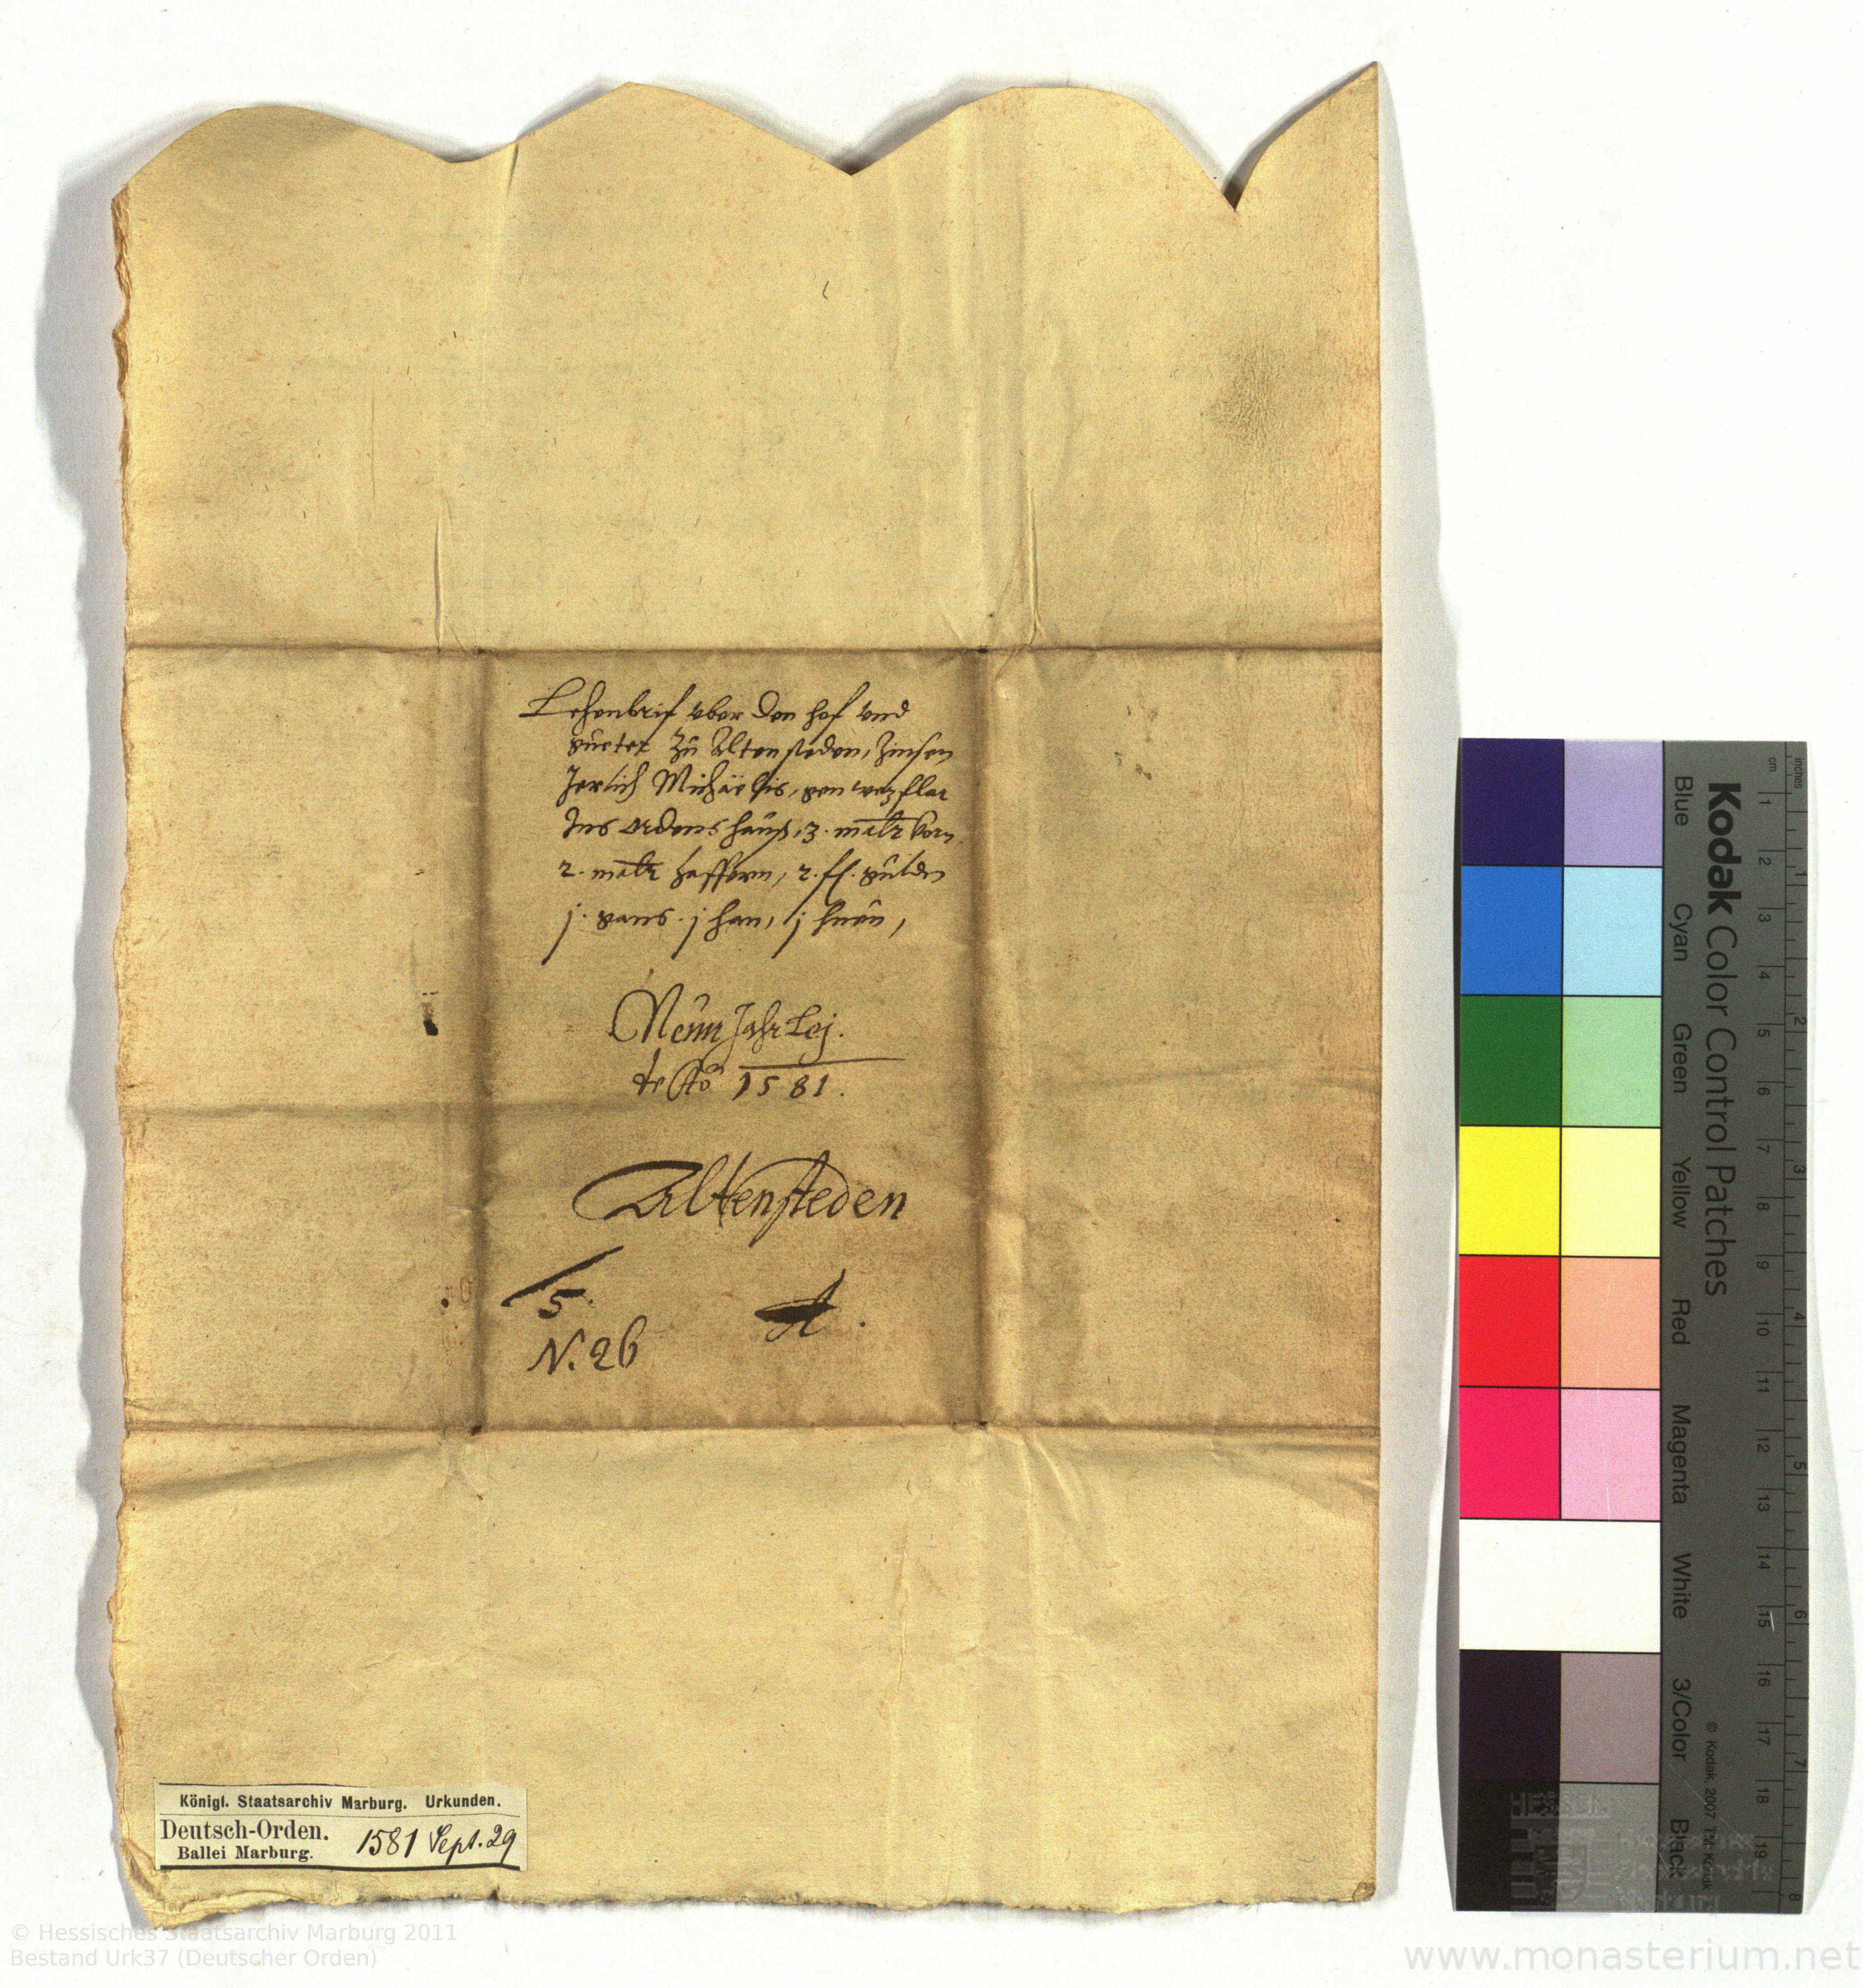 Lehenbrif vber den hof vnd
gueter Zu Altensteden, Zinsen
Jerlich Michaelis, gen wezflar
Ins ordens hauß, 3. maltr korn
2. maltr haffern, 2. fl. gulden
j. gans. j han, j huen,
Neun Jahr Lej.
de Ao 1581.
Altensteden
5.
A.
N. 26
Königl. Staatsarchiv Marburg. Urkunden.
Deutsch-Orden.
Ballei Marburg.
1581 Sept. 29
© Hessisches Staatsarchiv Marburg 2011
Bestand Urk37 (Deutscher Orden)
www.monasterium.net
Kodak Color Control Patches
Blue Cyan Green Yellow Red Magenta White 3/Color Black
© Kodak, 2007 TM: Kodak
cm 1 2 3 4 5 6 7 8 9 10 11 12 13 14 15 16 17 18 19
inches 1 2 3 4 5 6 7 8